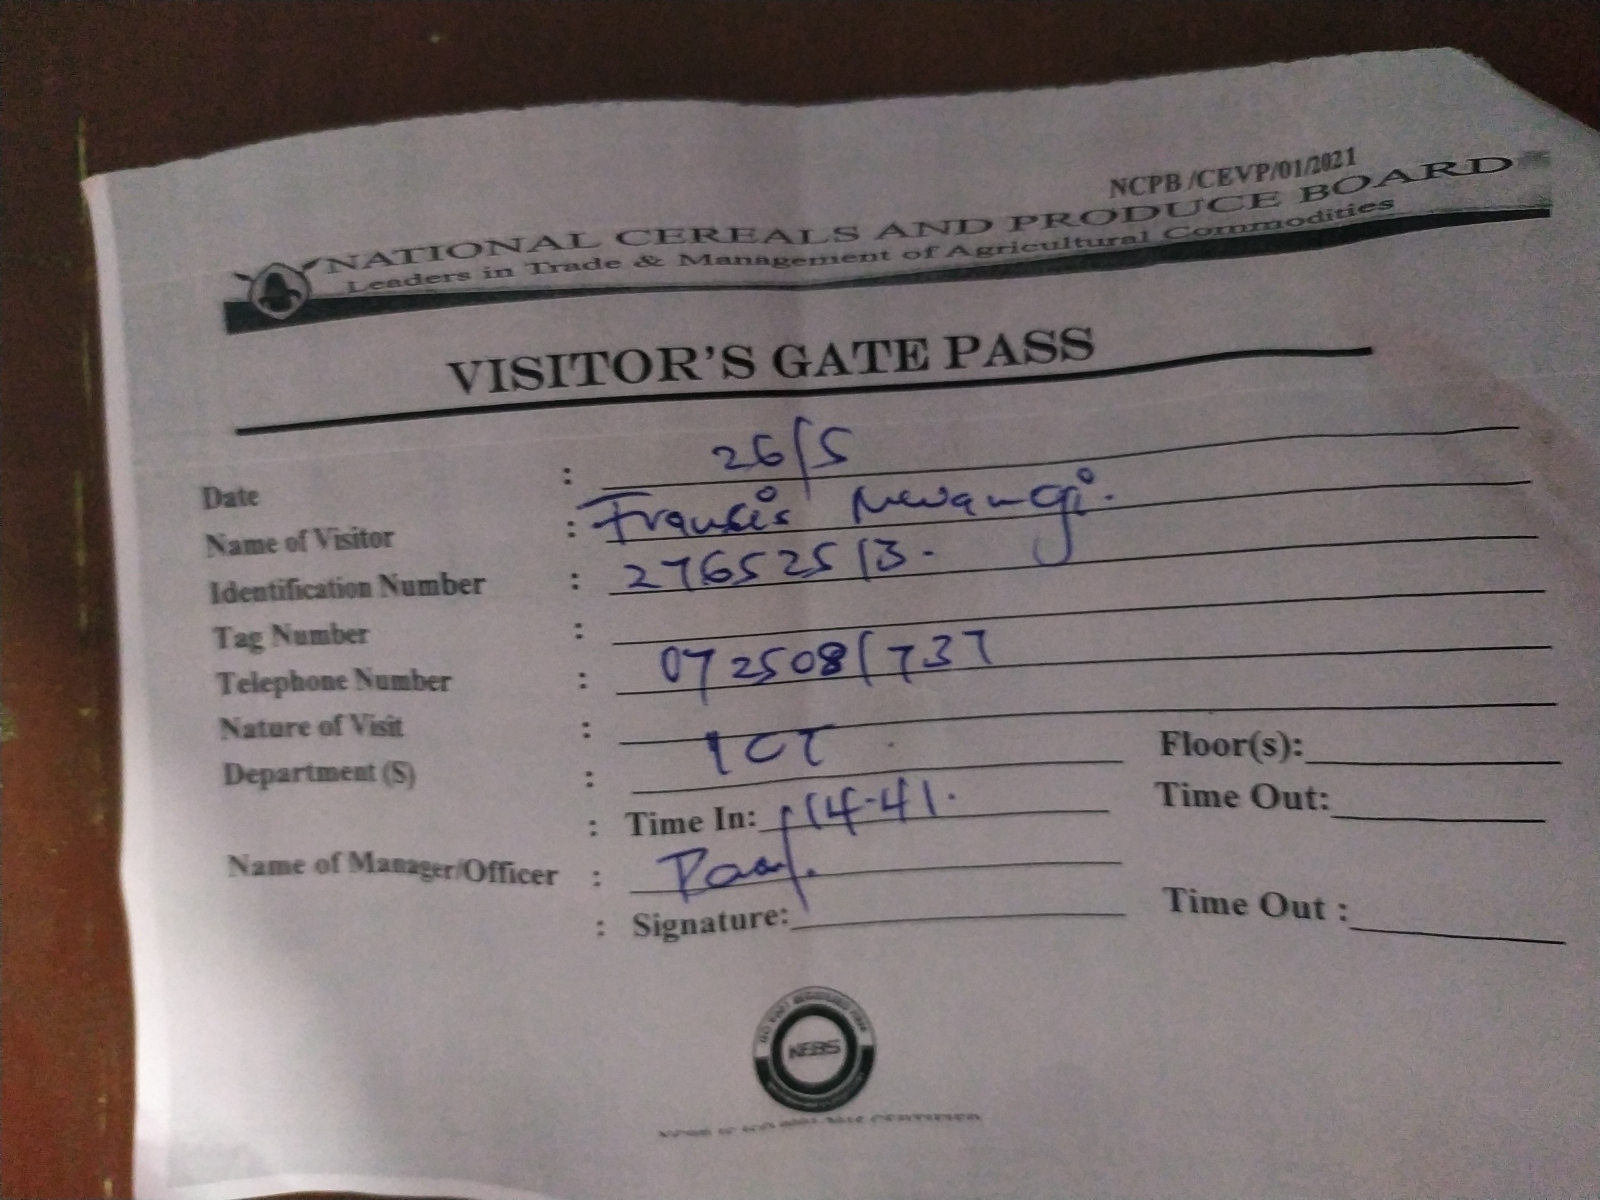 NCPB /CEVP/01/2021
NATIONAL CEREALS AND PRODUCE BOARD
Leaders in Trade & Management of Agricultural Commodities
VISITOR'S GATE PASS
Date : 26/5
Name of Visitor : Francis Mwangi.
Identification Number : 27652513.
Tag Number :
Telephone Number : 0725081737
Nature of Visit : ICT
Department (S) : Floor(s):
: Time In: 14-41. Time Out:
Name of Manager/Officer :
: Signature: Time Out :